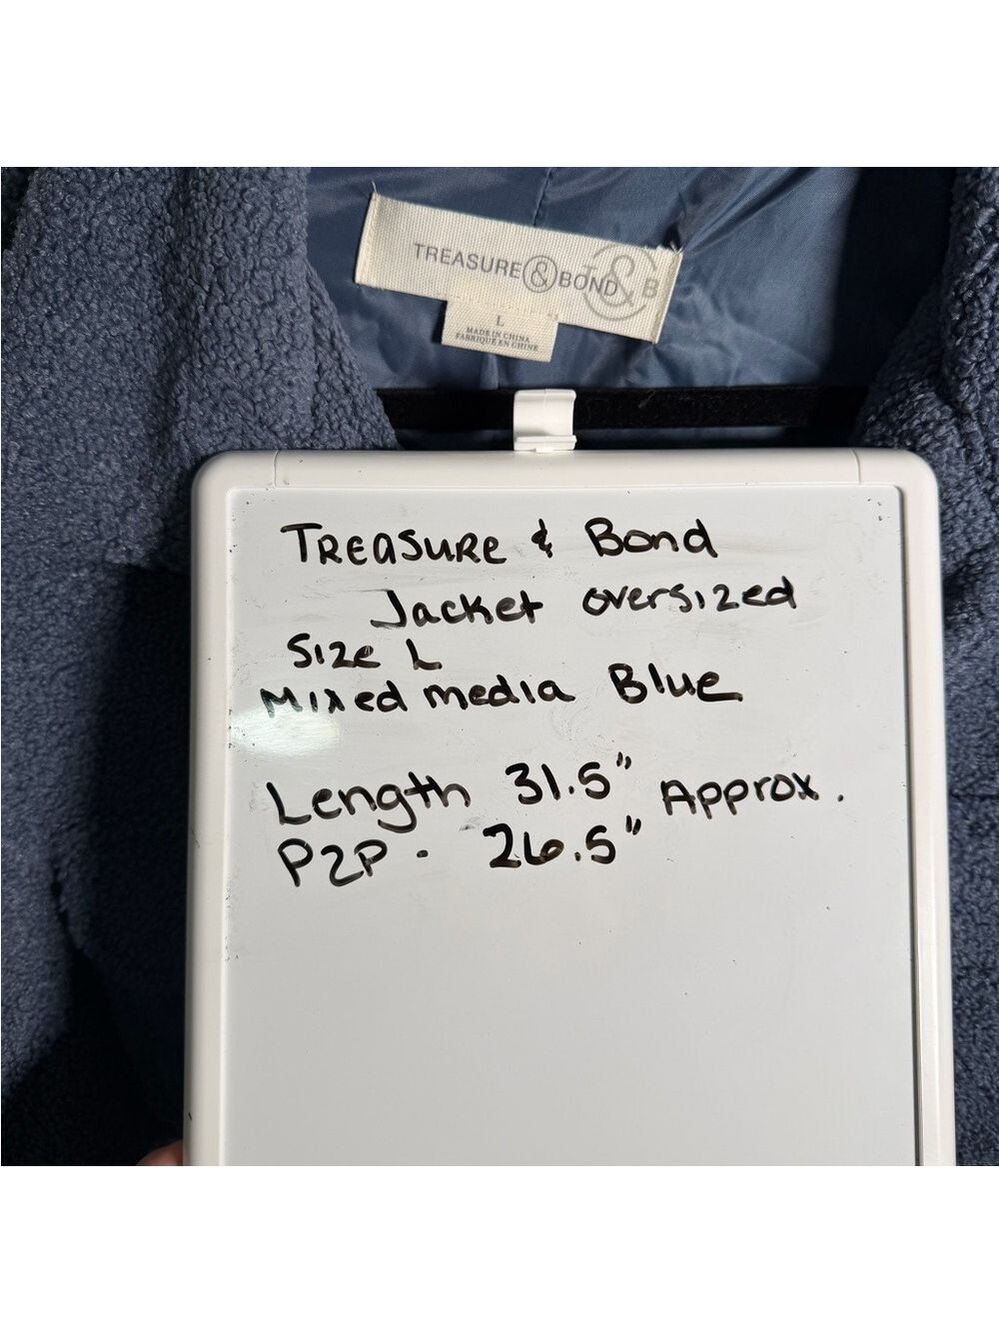 TREASURE & BOND
T & B
L
MADE IN CHINA
FABRIQUÉ EN CHINE
TREASURE & Bond
Jacket oversized
Size L
Mixed media Blue
Length 31.5" Approx.
P2P - 26.5"